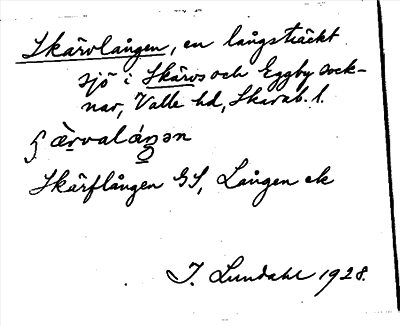 Skärvlången, en långsträckt
sjö i Skärvs och Eggby sock-
nar, Valle hd, Skarab. l.
Skärflången GS, Lången ek
I. Lundahl 1928.